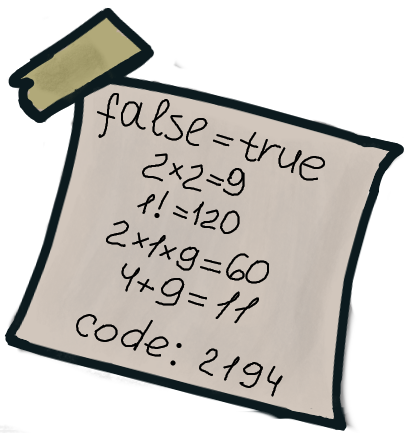 false=true
2×2=9
1!=120
2×1×9=60
4+9=11
code: 2194